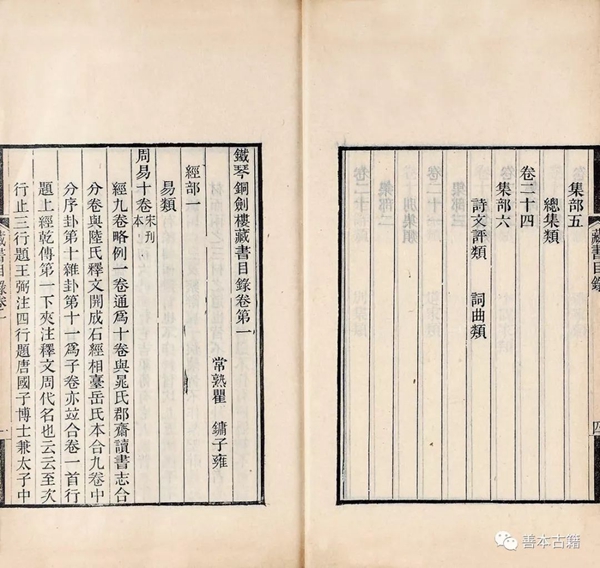 集部五
總集類
卷二十四
集部六
詩文評類 詞曲類
藏書目錄
四
鐵琴銅劍樓藏書目錄卷第一
常熟瞿 鏞子雍
經部一
易類
周易十卷宋刊本
經九卷略例一卷通爲十卷與晁氏郡齋讀書志合
分卷與陸氏釋文開成石經相臺岳氏本合九卷中
分序卦第十雜卦第十一爲子卷亦竝合卷一首行
題上經乾傳第一下夾注釋文周代名也云云至次
行止三行題王弼注四行題唐國子博士兼太子中
藏書目錄卷一
一
善本古籍